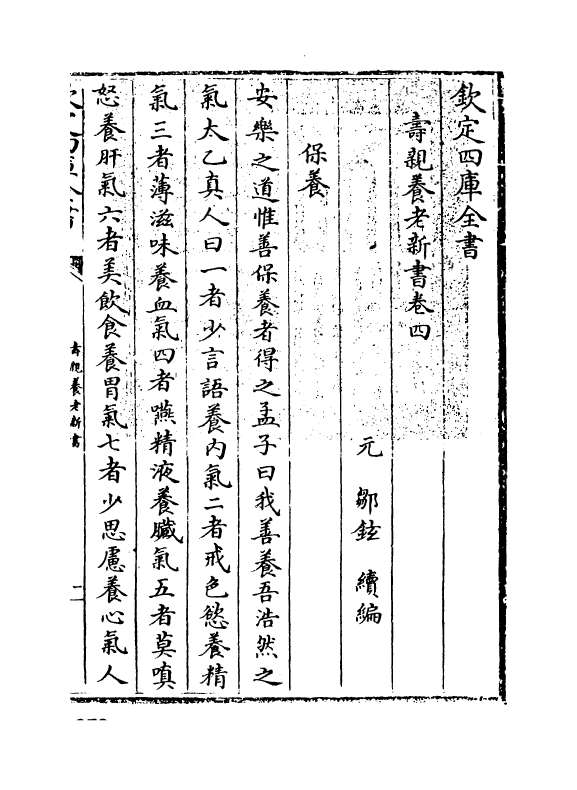 欽定四庫全書
壽親養老新書卷四
元 鄒鉉 續編
保養
安樂之道惟善保養者得之孟子曰我善養吾浩然之
氣太乙真人曰一者少言語養內氣二者戒色慾養精
氣三者薄滋味養血氣四者嚥精液養臟氣五者莫嗔
怒養肝氣六者美飲食養胃氣七者少思慮養心氣人
壽親養老新書